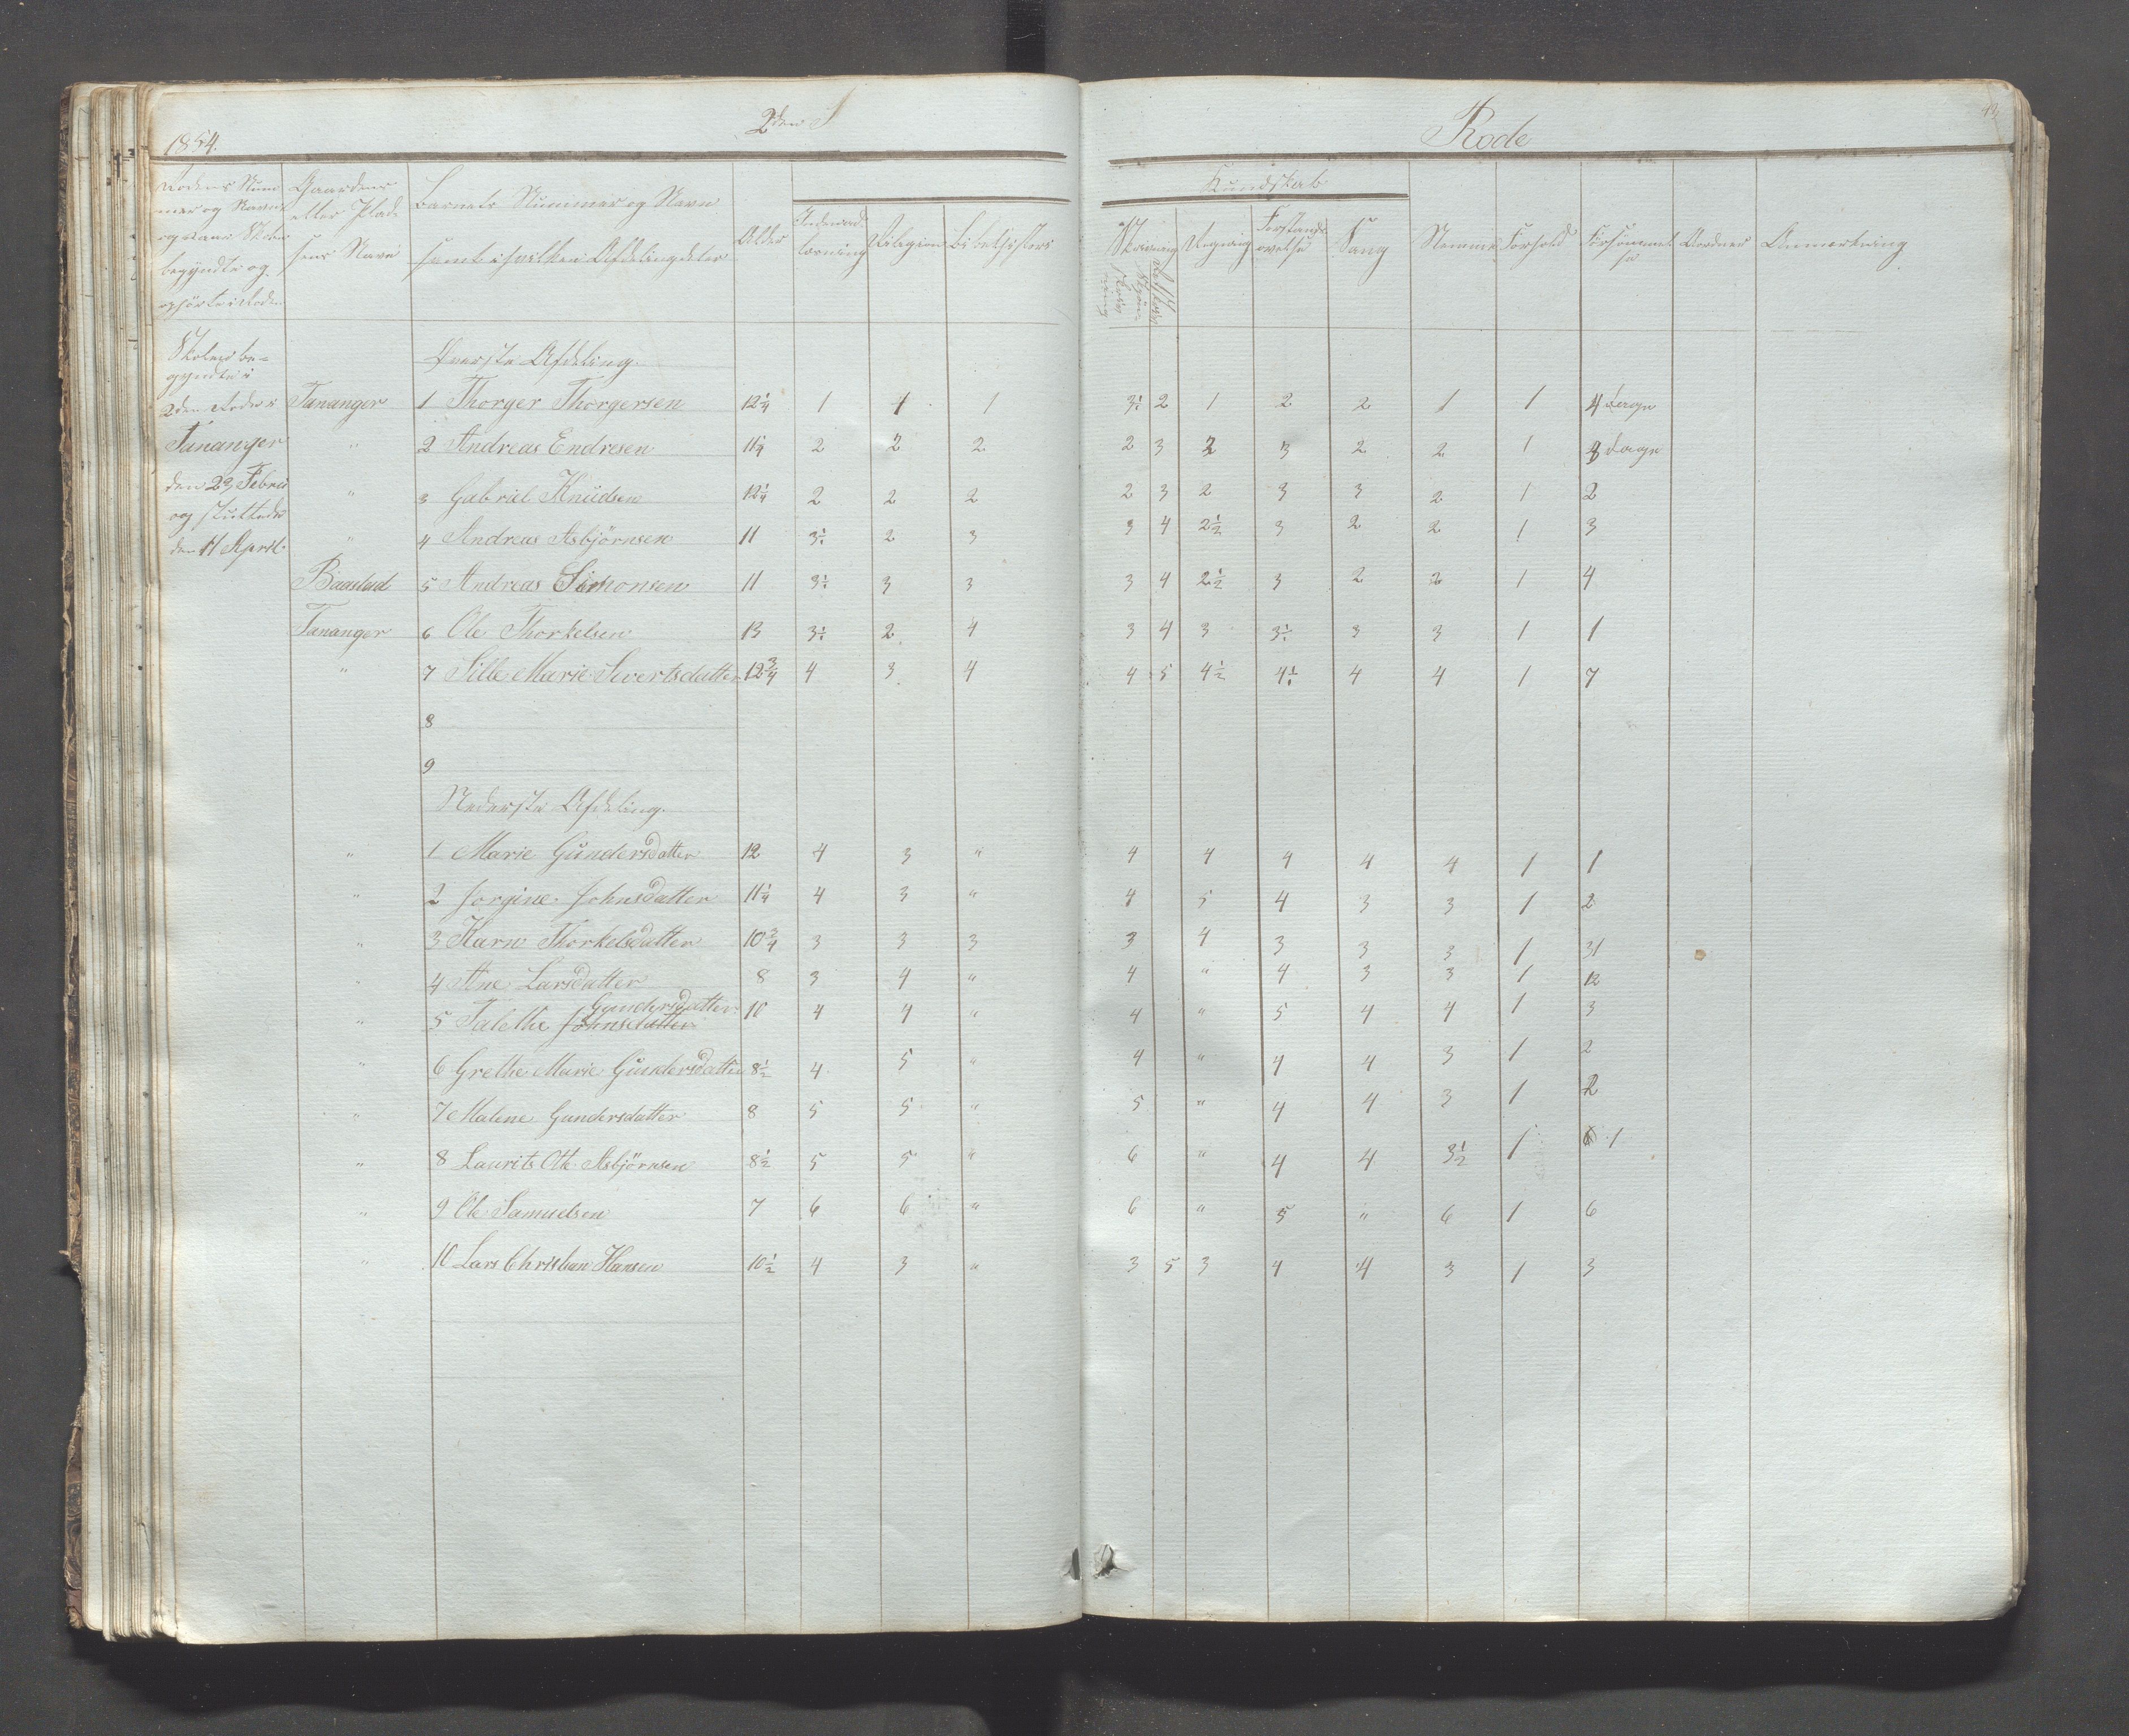 1854.
2den
Rode
Rodens Num-
mer og Navn
og naar Skolen
begyndte og
ophörte i Roden
Gaardens
eller Plad-
sens Navn
Barnets Nummer og Navn
samt i hvilken Afdeling
Alder
Kundskab
Indenad-
læsning
Religion
Bibelhistorie
Skrivning
Regning
Forstands-
øvelse
Sang
Nemme
Forhold
Forsømmel-
se
Anmærkning
Skolen be-
gyndte i
2den Rode i
Tananger
den 23 Febru
og sluttede
den 11 April
Øverste Afdeling.
Tananger 1 Thorger Thorgersen 12¼ 1 1 1 3½ 2 1 2 2 1 1 4 dage
" 2 Andreas Endresen 11¼ 2 2 2 2 3 2 3 2 2 1 dage
" 3 Gabriel Knüdsen 12¼ 2 2 2 2 3 2 3 3 2 1 2
" 4 Andreas Asbjörnsen 11 3½ 2 3 3 4 2½ 3 2 2 1 3
5 Andreas Simonsen 11 3½ 3 3 3 4 2½ 3 2 2 1 4
Tananger 6 Ole Thorkelsen 13 3½ 2 4 3 4 3 3½ 3 3 1 1
" 7 Sille Marie Sivertsdatter 12¾ 4 3 4 4 5 4½ 4½ 4 4 1 7
8
9
Nederste Afdeling.
" 1 Marie Gündersdatter 12 4 3 " 4 4 4 4 4 1 1
" 2 Jorgine Johnsdatter 11¼ 4 3 " 4 5 4 3 3 1 2
" 3 Karn Thorkelsdatter 10¾ 3 3 3 3 4 3 3 3 1 31
" 4 Ane Larsdatter 8 3 4 " 4 " 4 3 3 1 12
Gundersdatter
" 5 Talethe Johnsdatter 10 4 4 " 4 " 5 4 4 1 3
" 6 Grethe Marie Gündersdatter 8½ 4 5 " 4 " 4 4 3 1 2
" 7 Malene Gundersdatter 8 5 5 " 5 " 4 4 3 1 2
" 8 Laurits Ott. Asbjörnsen 8½ 5 5 " 6 " 4 4 3½ 1 1
" 9 Ole Samuelsen 7 6 6 " 6 " 5 " 6 1 6
" 10 Lars Christian Hansen 10½ 4 3 " 3 5 3 4 4 3 1 3